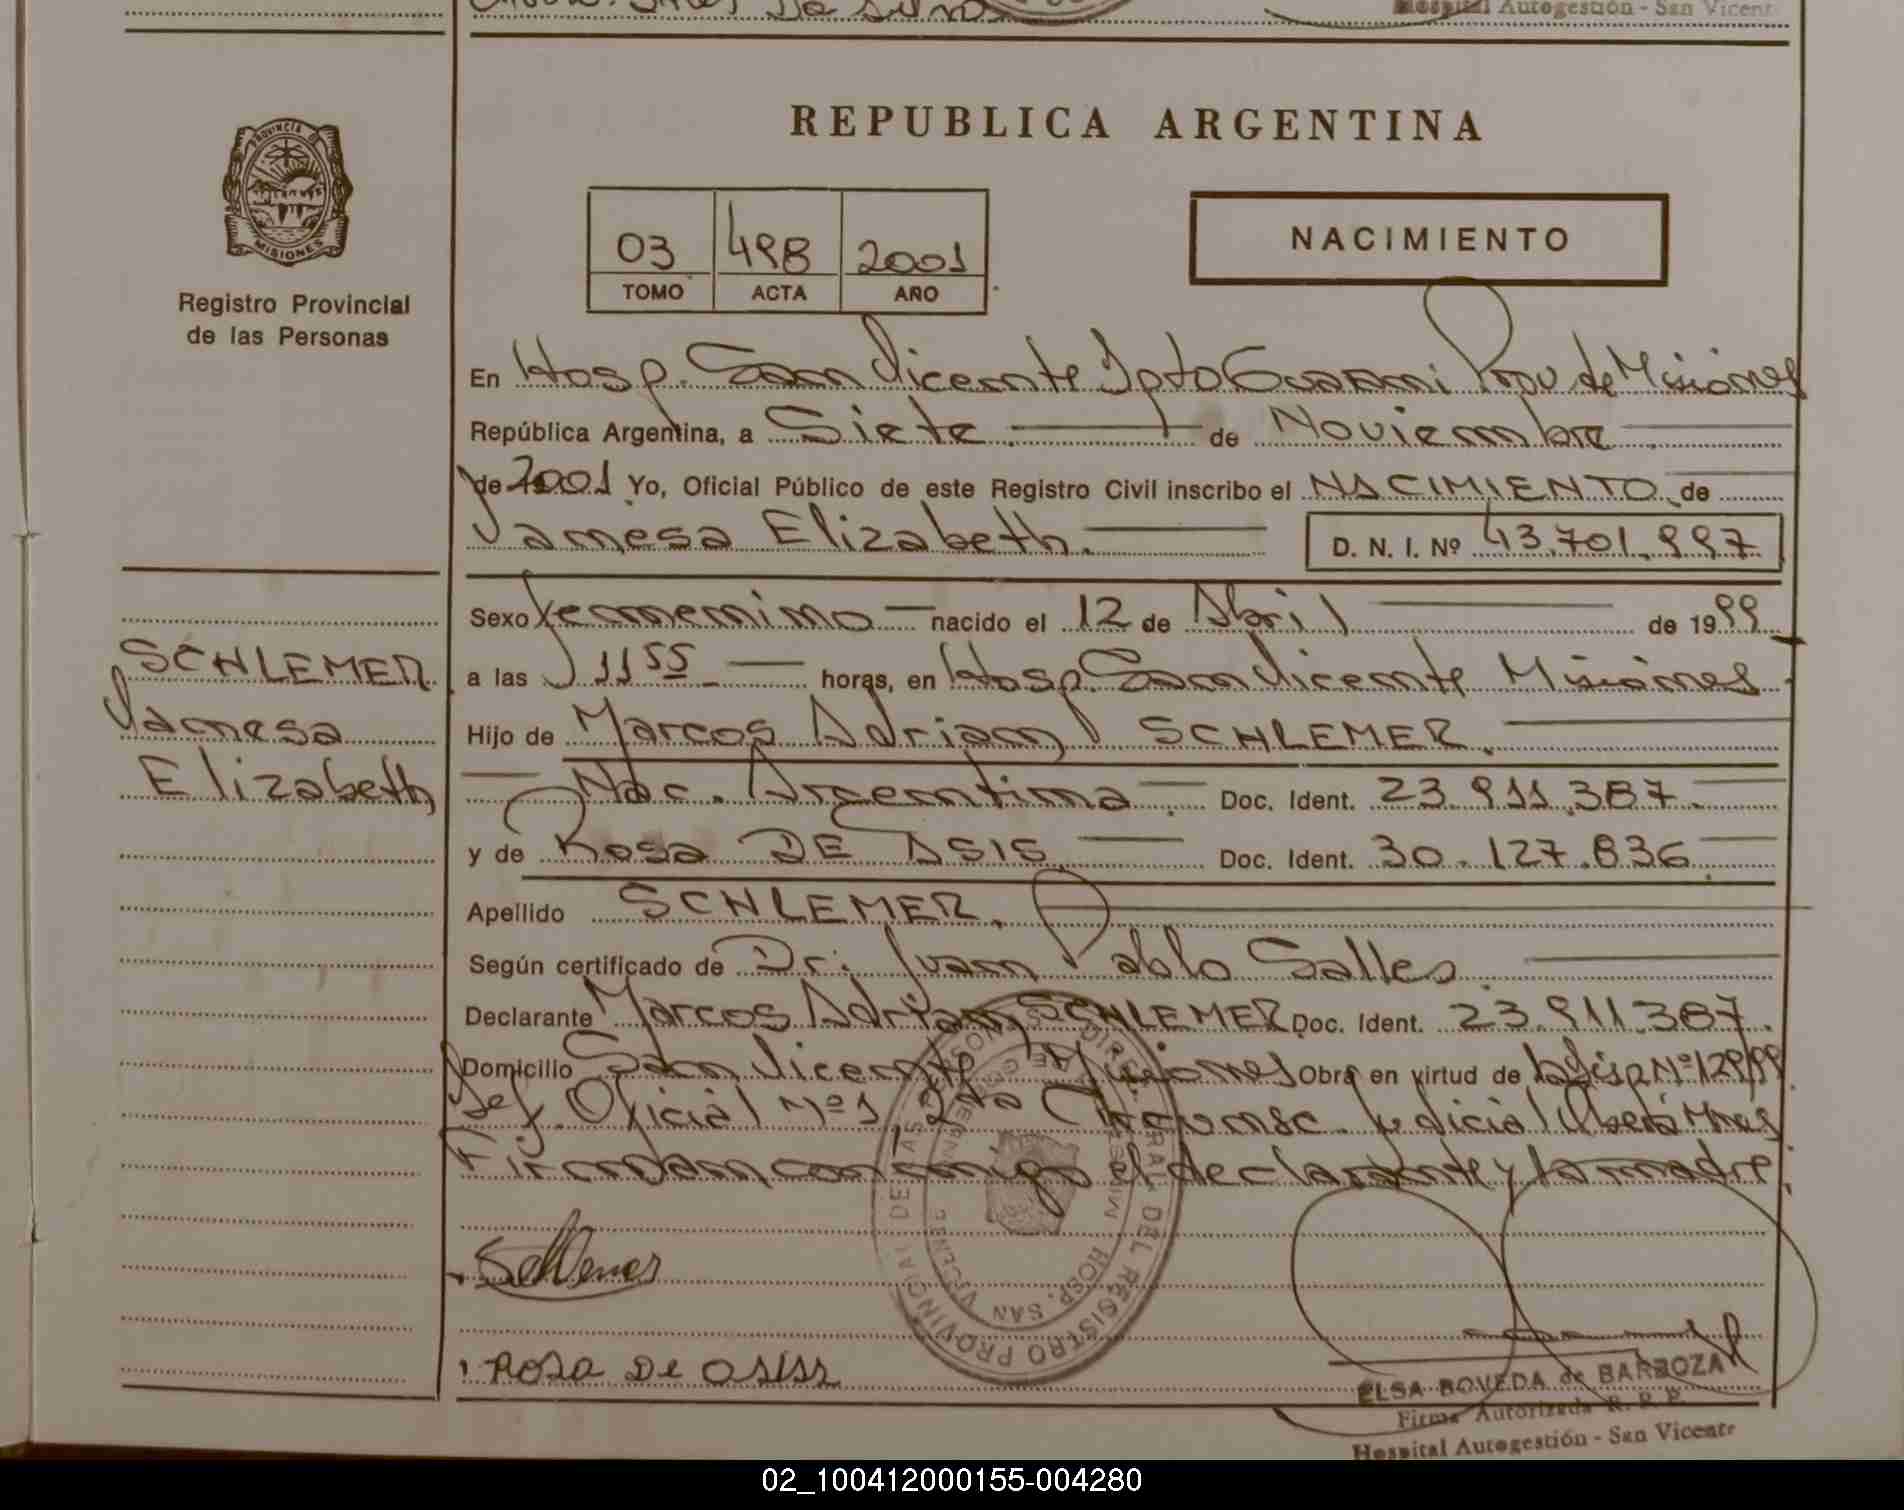 Hospital Autogestión - San Vicente
REPUBLICA ARGENTINA
PROVINCIA DE
MISIONES
Registro Provincial
de las Personas
03 498 2001
TOMO ACTA AÑO
NACIMIENTO
En Hosp. San Vicente Dpto Guarani Prov de Misiones
República Argentina, a Siete de Noviembre
de 2001 Yo, Oficial Público de este Registro Civil inscribo el NACIMIENTO de
Vanesa Elizabeth. D. N. I. Nº 43.701.997
Sexo femenino nacido el 12 de Abril de 1999
SCHLEMER
Vanesa
Elizabeth
a las 11 55 horas, en Hosp. San Vicente Misiones
Hijo de Marcos Adrian SCHLEMER.
Nac. Argentina Doc. Ident. 23.911.387.
y de Rosa DE ASIS Doc. Ident. 30.127.836
Apellido SCHLEMER.
Según certificado de Dr. Juan Pablo Salles
Declarante Marcos Adrian SCHLEMER Doc. Ident. 23.911.387.
Domicilio San Vicente Misiones Obra en virtud de Nº 129/99
Def. Oficial Nº 1 2da Circunsc. Judicial Oberá Mnes
Firman conmigo el declarante y la madre
Schlemer
ROSA DE ASISS
DIREC. GRAL. DEL REGISTRO PROVINCIAL DE LAS PERSONAS
HOSP. SAN VICENTE
ELSA BOVEDA de BARBOZA
Firma Autorizada R. P. P.
Hospital Autogestión - San Vicente
02_100412000155-004280